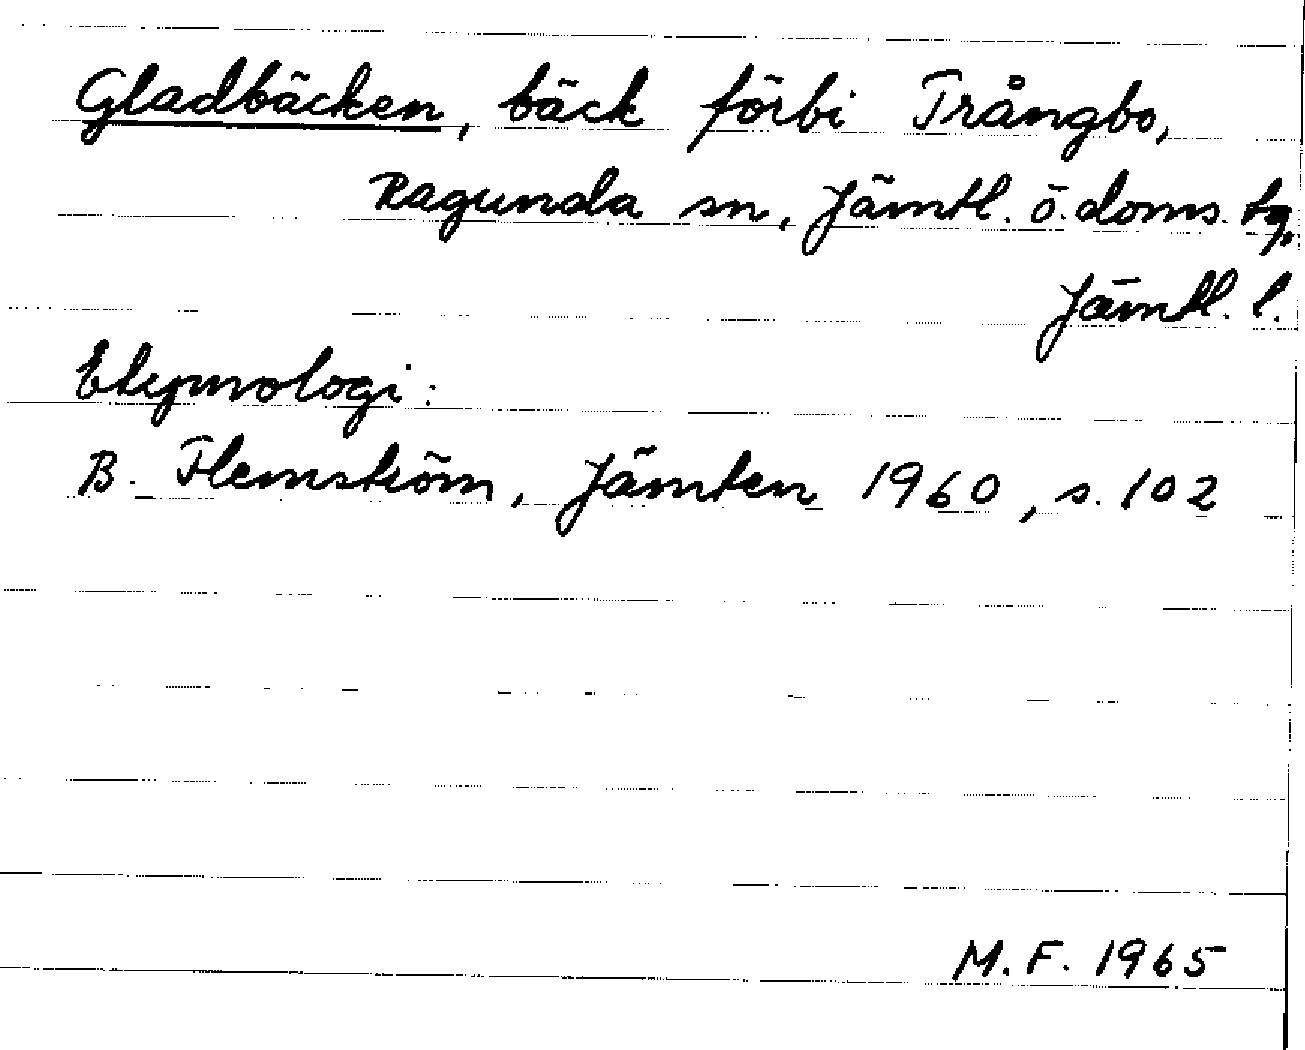 Gladbäcken, bäck förbi Trångbo,
Ragunda sn, Jämtl. ö. doms. tg,
Jämtl. l.
Etymologi:
B. Flemström, Jämten 1960, s. 102
M. F. 1965